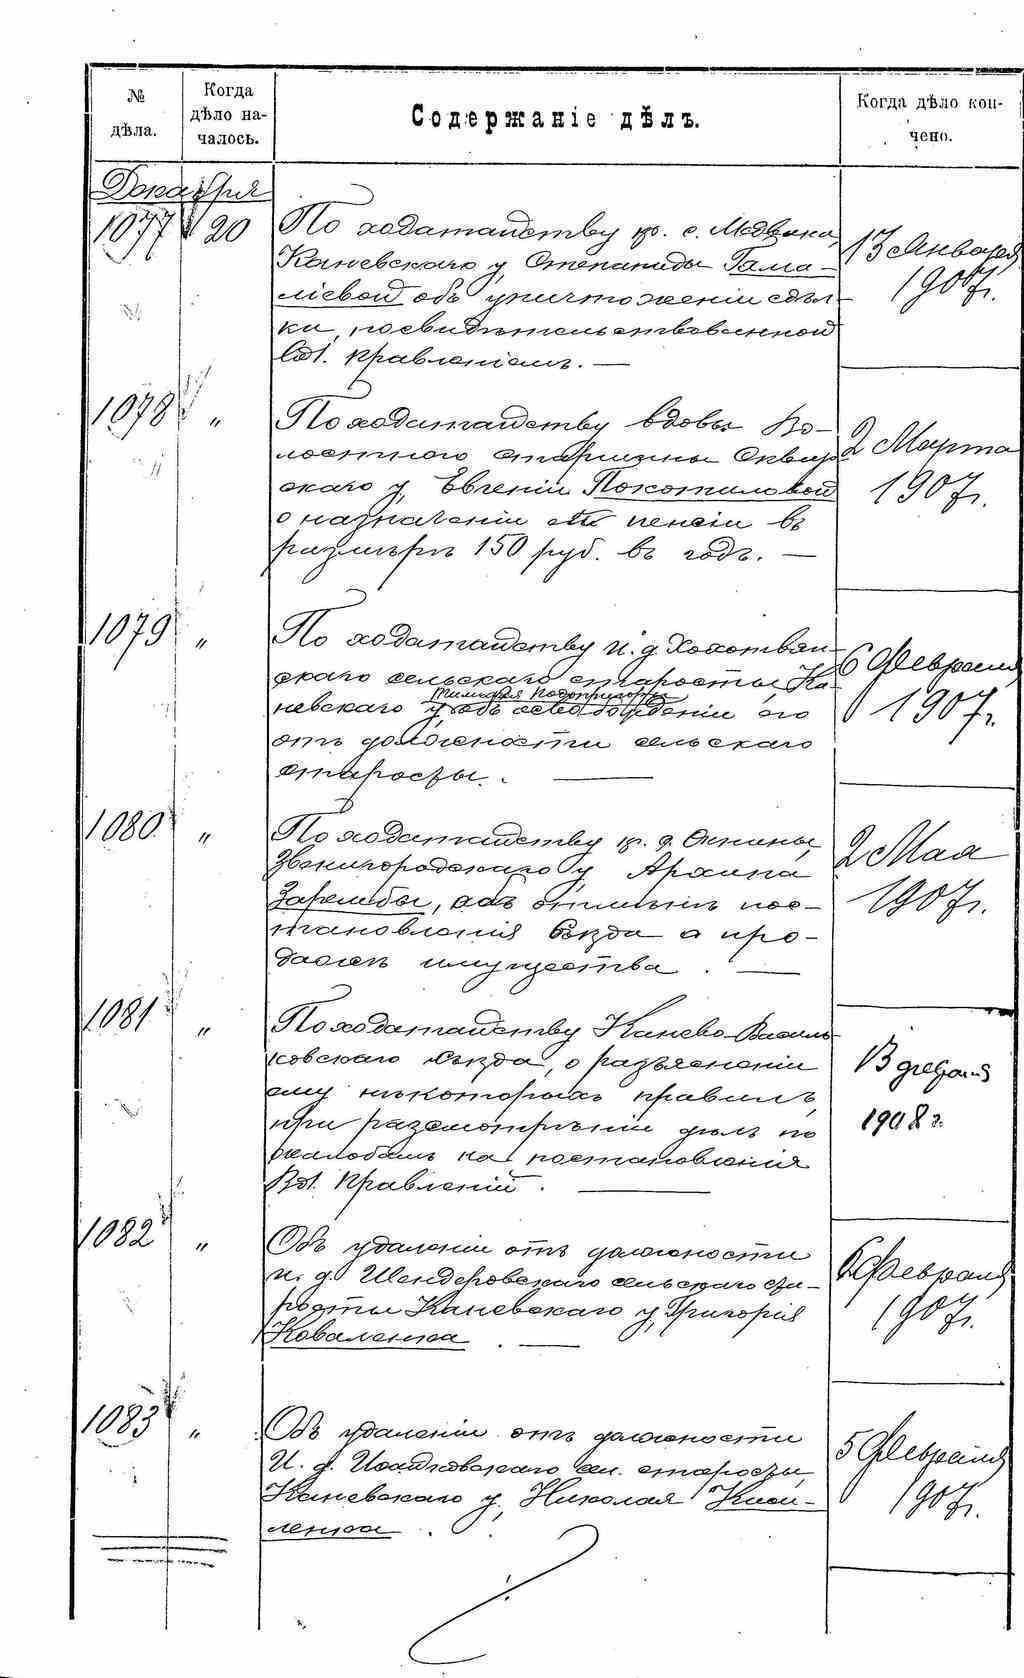 № дѣла.
Когда дѣло началось.
Содержаніе дѣлъ.
Когда дѣло кончено.
Декабря
1077 20 По ходатайству кр. с. Медвина,
Каневскаго у, Степаниды Гама-
ліевой объ уничтоженіи сдѣл-
ки, посвидѣтельствованной
Вол. правленіемъ. —
13 Января
1907 г.
1078 „ По ходатайству вдовы Во-
лостного старшины Сквир
скаго у, Евгеніи Покотиловой
о назначеніи ей пенсіи въ
размѣрѣ 150 руб. въ годъ. —
2 Марта
1907 г.
1079 „ По ходатайству и. д Хохотвян-
скаго сельскаго старосты Ка-
невскаго у объ освобожденіи его
отъ должности сельскаго
старосты. —
6 Февраля
1907 г.
1080 „ По ходатайству кр. д.
Звенигородскаго у, Архипа
Зарембы, объ отмѣнѣ пос-
тановленія Съѣзда о про-
дажѣ имущества. —
2 Мая
1907 г.
1081 „ По ходатайству Канево-Василь-
ковскаго Съѣзда, о разъясненіи
ему нѣкоторыхъ правилъ
при разсмотрѣніи дѣлъ по
жалобамъ на постановленія
Вол. Правленій. —
13 февраля
1908 г.
1082 „ Объ удаленіи отъ должности
и. д. Шендеровскаго сельскаго ста-
росты Каневскаго у, Григорія
Коваленка. —
6 Февраля
1907 г.
1083 „ Объ удаленіи отъ должности
И. д. сел. старосты,
Каневскаго у, Николая
ленка.
5 Февраля
1907 г.